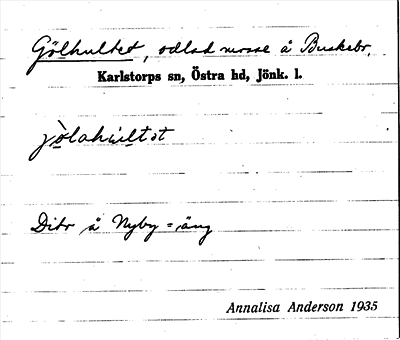 Gölhultet, odlad mosse å Buskebr.
Karlstorps sn, Östra hd, Jönk. l.
jòlahultət
Dito å Nyby = äng
Annalisa Anderson 1935